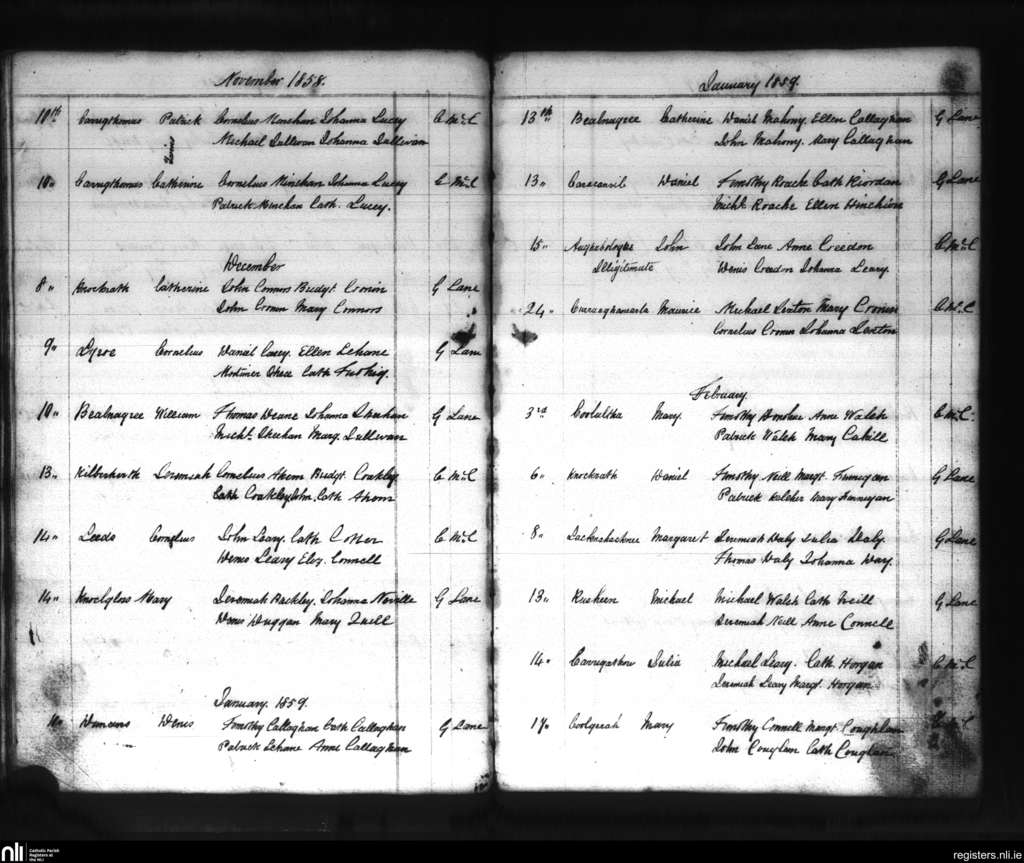 November 1858.
10th Carrigthomas Patrick Cornelius Minehan Johanna Lucey C McC
Twins
Michael Sullivan Johanna Sullivan
10" Carrigthomas Catherine Cornelius Minehan Johanna Lucey C McC
Patrick Minehan Cath. Lucey.
December
8" Knockrath Catherine John Connors Budgt. Cronin G Lane
John Cronin Mary Connors
9" Cornelius Daniel Casey. Ellen Lehane G Lane
Mortimer Cath
10" Bealnagree William Thomas Deane Johanna Sheehan G Lane
Michl. Sheehan Marg. Sullivan
13" Jeremiah Cornelius Ahern Budgt. Coakley C McC
Cath Coakley John. Cath Ahern
14" Leeds Cornelius John Leary. Cath Cotter C McC
Denis Leary Eliz. Connell
14" Mary Jeremiah Buckley. Johanna Neville G Lane
Denis Duggan Mary Quill
January. 1859.
Denis Timothy Callaghan Cath Callaghan G Lane
Patrick Lehane Anne Callaghan
January 1859.
13th Bealnagree Catherine Daniel Mahony. Ellen Callaghan G Lane
John Mahony. Mary Callaghan
13" Daniel Timothy Roache Cath Riordan G Lane
Michl. Roache Ellen Hinchion
15" John John Lane Anne Creedon C McC
Illigitimate Denis Creedon Johanna Leary.
24" Maurice Michael Sexton Mary Cronin C McC
Cornelius Cronin Johanna Sexton
February.
3rd Mary. Timothy Donohue Anne Walsh C McC
Patrick Walsh Mary Cahill
6" Knockrath Daniel Timothy Neill Margt. Finnegan G Lane
Patrick Kelcher Mary Finnegan
8" Margaret Jeremiah Daly Julia Daly. G Lane
Thomas Daly Johanna Dary.
13" Rusheen Michael Michael Walsh Cath Neill G Lane
Jeremiah Neill Anne Connell
14" Julia Michael Leary. Cath. Horgan C McC
Jeremiah Leary Margt. Horgan
17" Coolgerah Mary Timothy Connell Margt Coughlan
John Couglan Cath Couglan
nli
Catholic Parish
Registers at
the NLI
registers.nli.ie